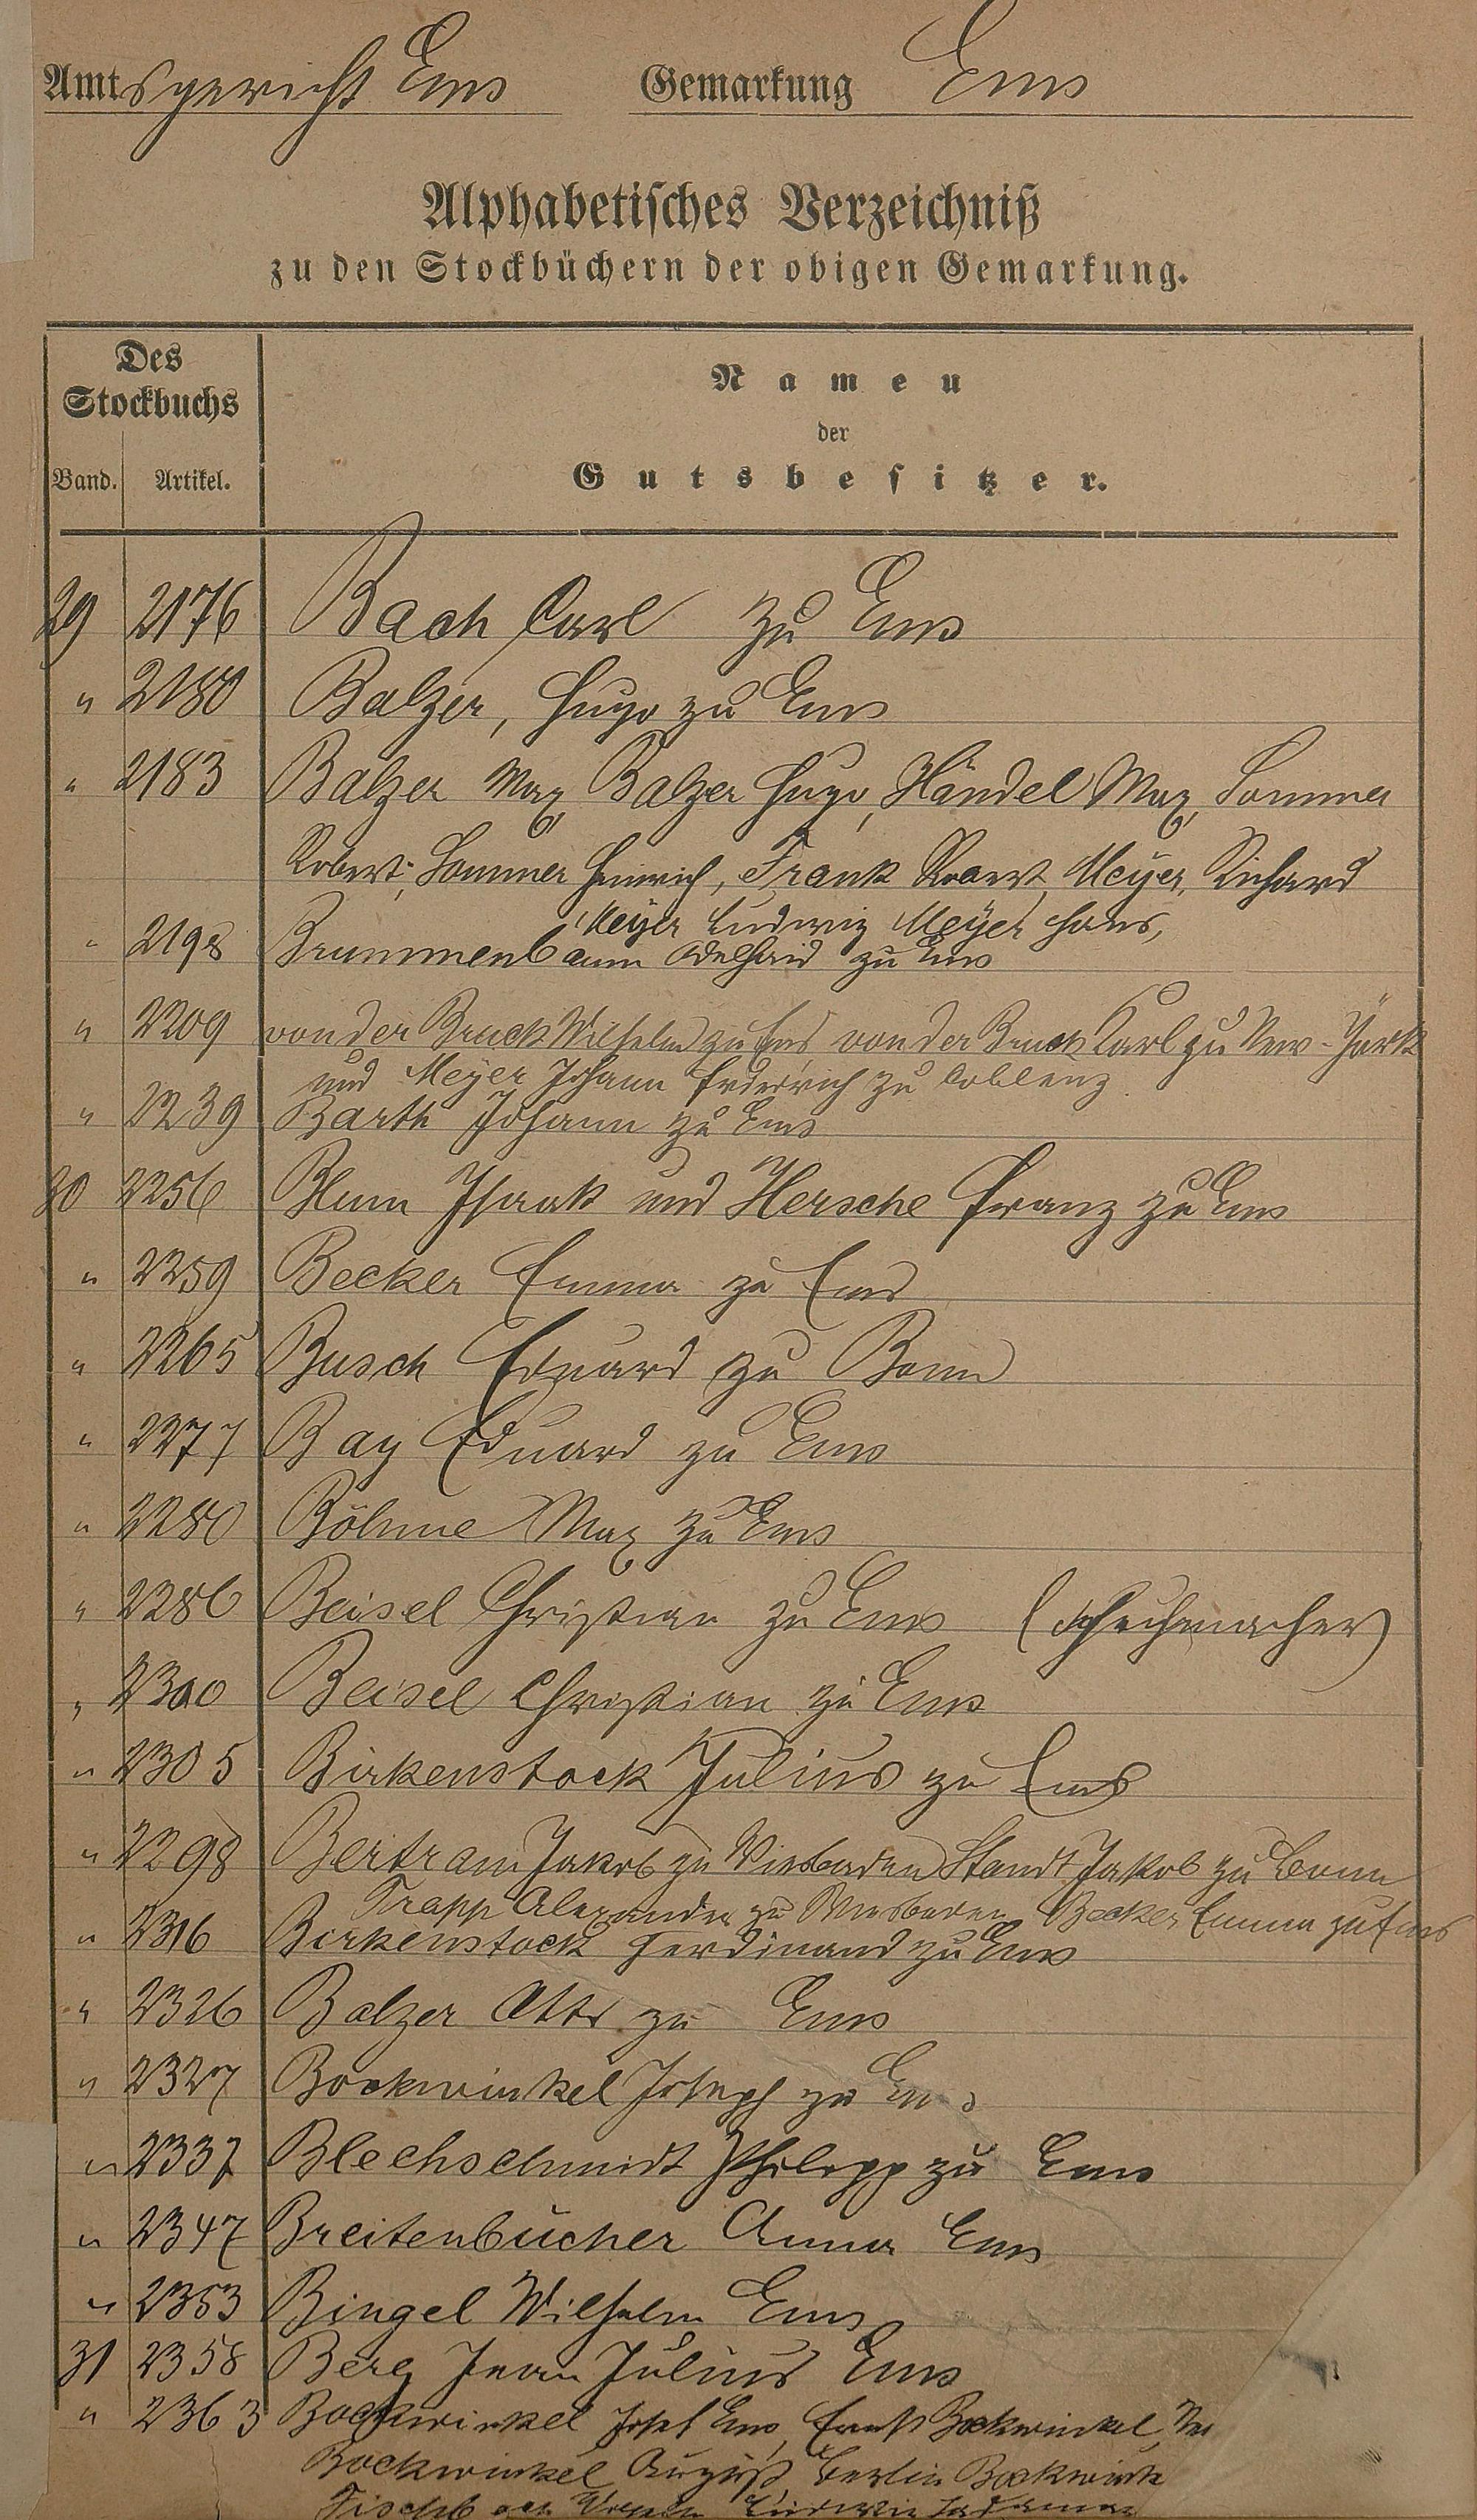 Amtsgericht Ems Gemarkung Ems
Alphabetisches Verzeichniß
zu den Stockbüchern der obigen Gemarkung.
Des
Stockbuchs
Band. Artikel.
Namen
der
Gutsbesitzer.
29 2176 Bach Carl zu Ems
" 2180 Balzer, Hugo zu Ems
" 2183 Balzer Max, Balzer Hugo, Händel Max, Sommer
Robert, Sommer Heinrich, Frank Robert, Meyer, Richard
Meyer Ludwig Meyer Hans,
" 2198 Brummenbaum Adelheid zu Ems
" 2209 von der Bruck Wilhelm zu Ems, von der Bruck Karl zu New-York
und Meyer Johann Friedrich zu Coblenz.
" 2239 Barth Johann zu Ems
30 2256 Blum Isaak und Hersche Franz zu Ems
" 2259 Becker Emma zu Ems
" 2265 Busch Eduard zu Bonn
" 2277 Bay Eduard zu Ems
" 2280 Böhme Max zu Ems
" 2286 Beisel Christian zu Ems (Schuhmacher)
" 2300 Beisel Christian zu Ems
" 2305 Birkenstock Julius zu Ems
" 2298 Bertram Jakob zu Wiesbaden Standt Jakob zu Bonn
Trapp Alexander zu Wiesbaden Becker Emma zu Ems
" 2316 Birkenstock Ferdinand zu Ems
" 2326 Balzer Otto zu Ems
" 2327 Bockwinkel Joseph zu Ems
" 2337 Blechschmidt Philipp zu Ems
" 2347 Breitenbücher Anna Ems
" 2353 Bingel Wilhelm Ems
31 2358 Berg Jean Julius Ems
" 2363 Bockwinkel Josef Ems, Ernst Bockwinkel,
Bockwinkel August, Berlin Bockwink